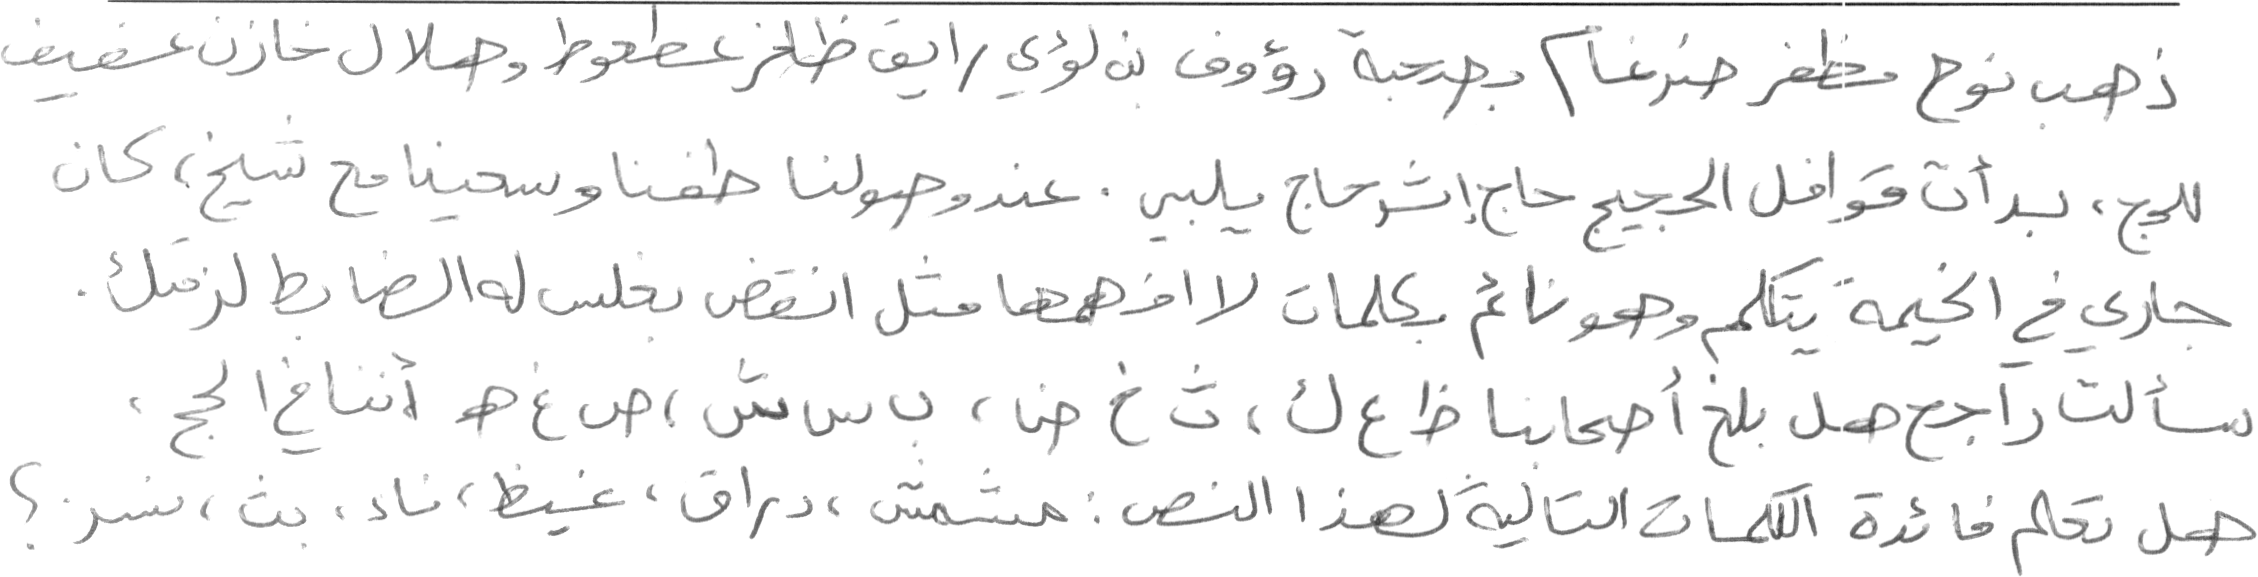 ذهب نوح مظفر ضرغام بصحبة رؤوف بن لؤي رايق ظافر عطعوط وهلال خازن عفيف
للحج، بدأت قوافل الحجيج حاج إثر حاج يلبي. عند وصولنا طفنا وسعينا مع شيخ، كان
جاري في الخيمة يتكلم وهو نائم بكلمات لا افهمها مثل انقض بغلس له الضابط لزقتك.
سألت راجح هل بلغ أصحابنا ظ ع ك، ث خ ض، ب س ش، ص غ هـ أننا في الحج،
هل تعلم فائدة الكلمات التالية لهذا النص: مشمش، دراق، غيظ، ناء، بث، نسر؟